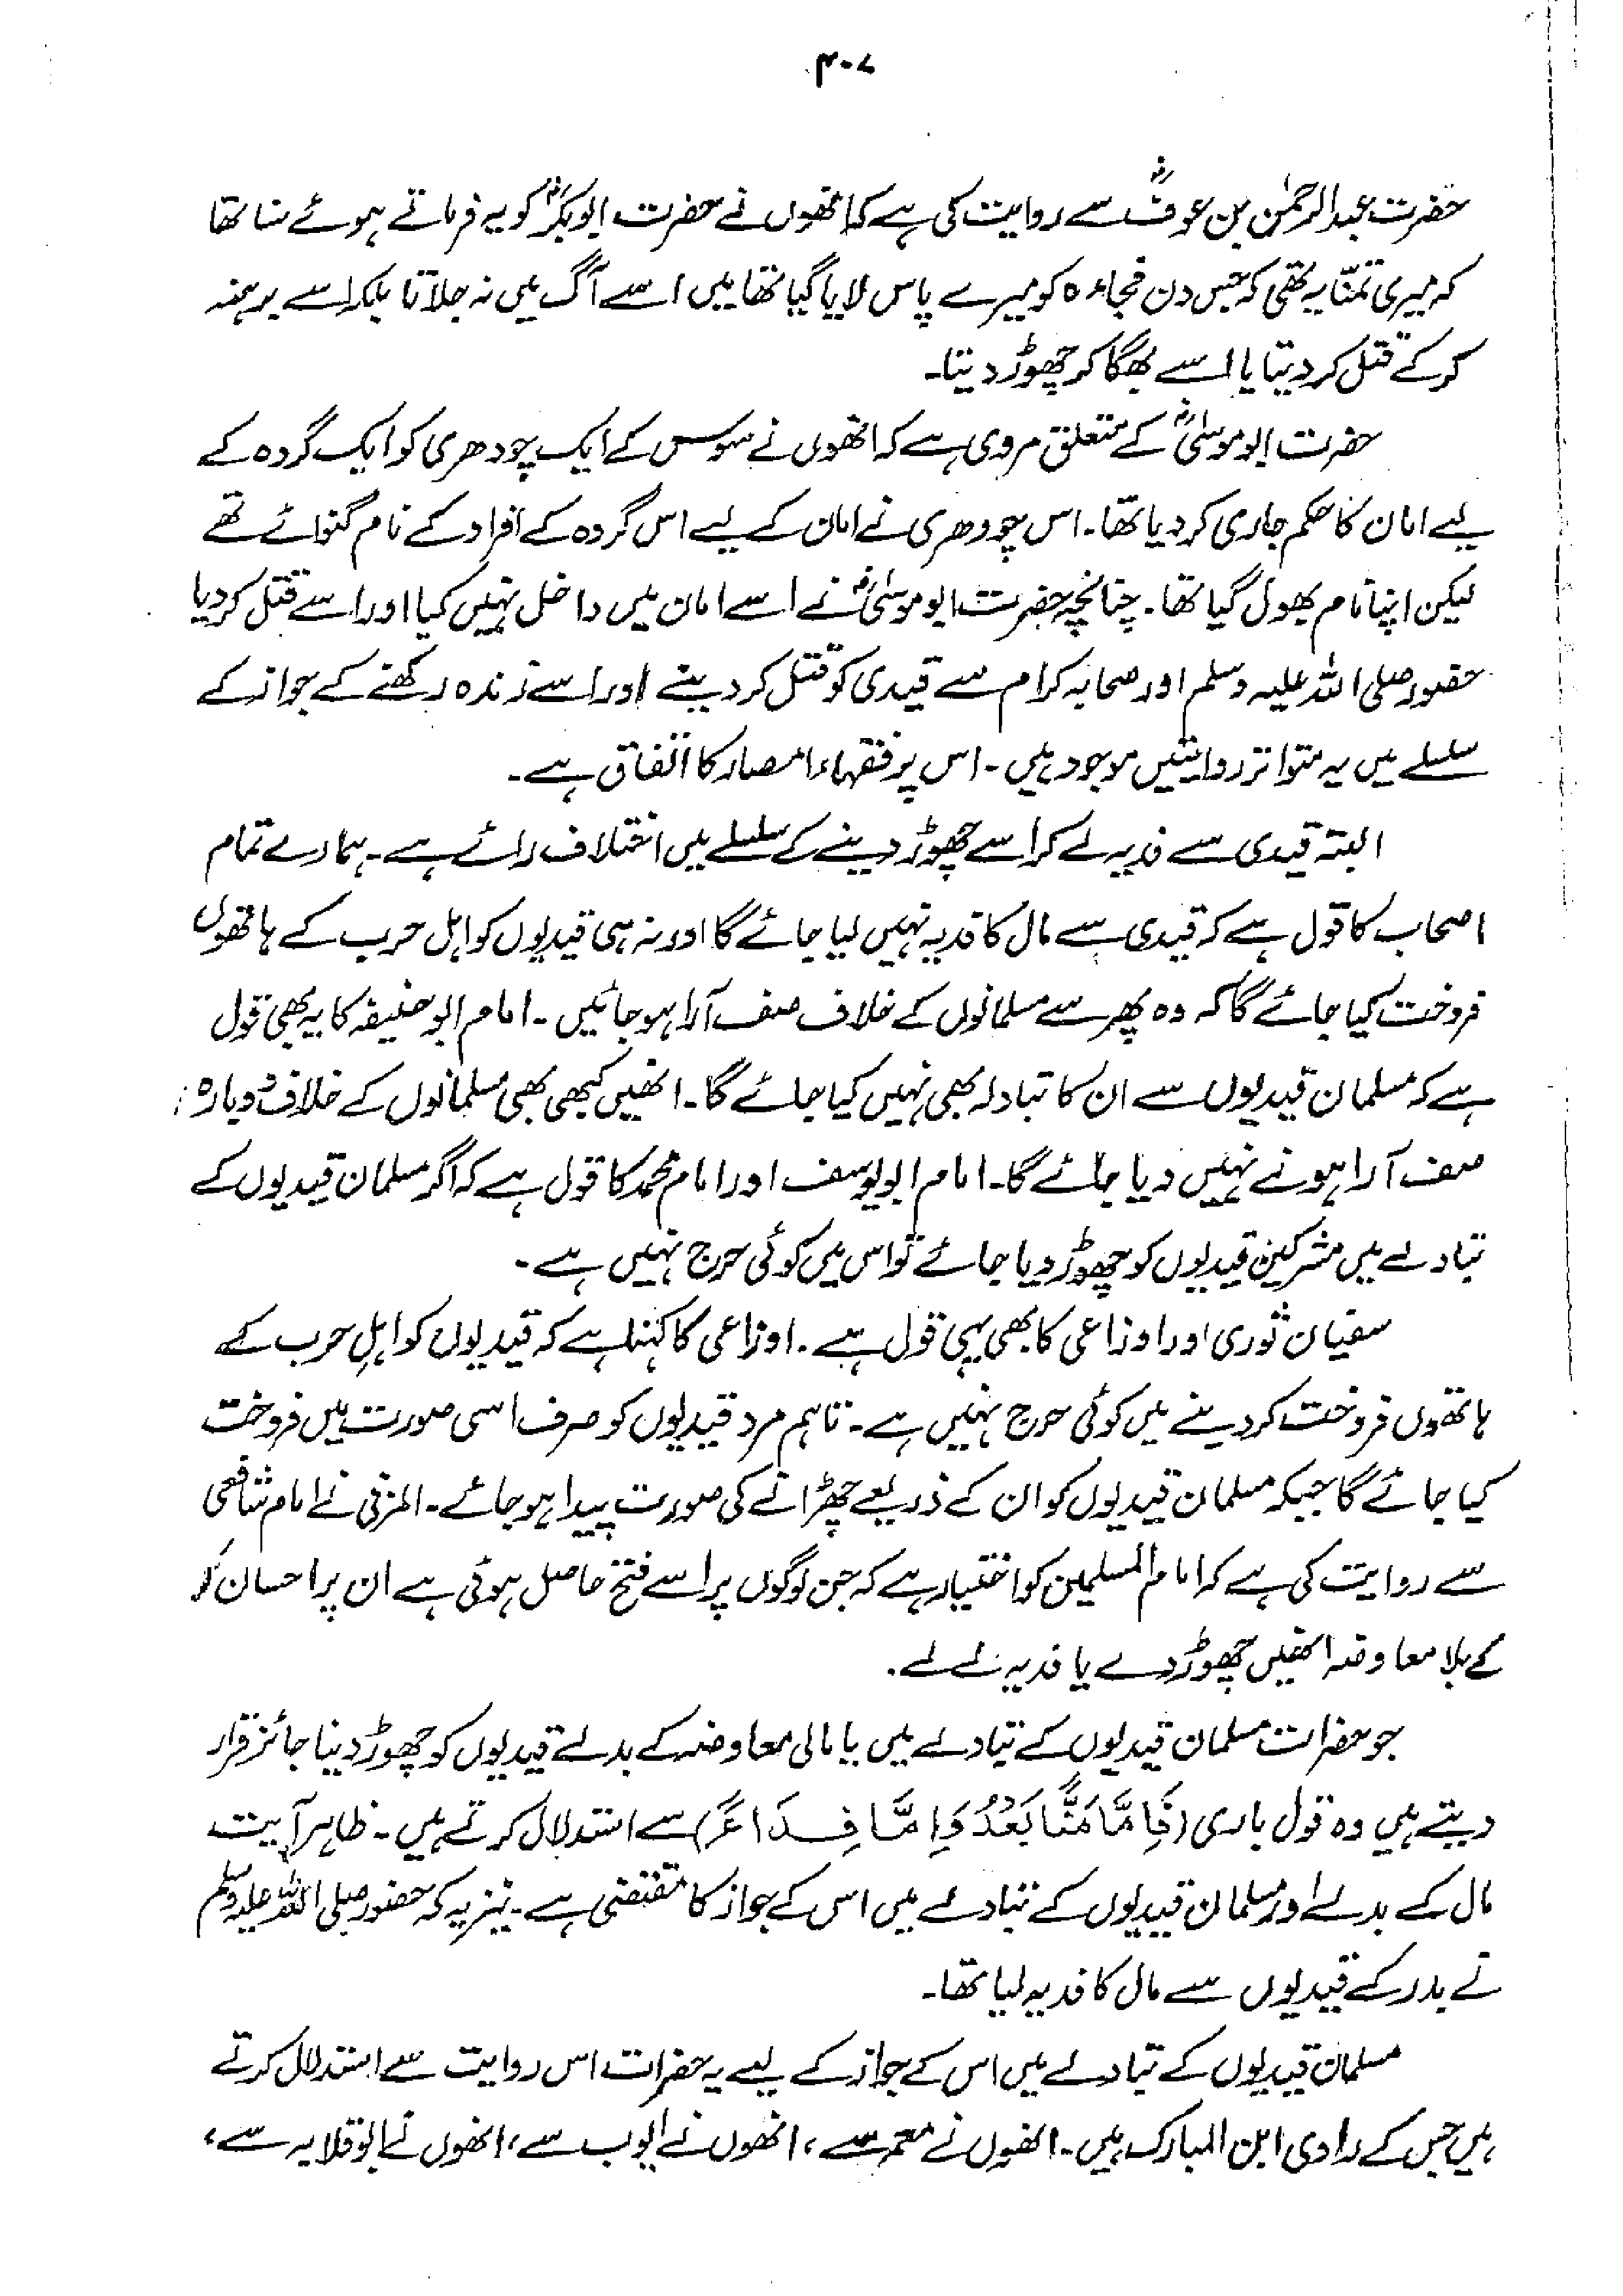 ۳۰۷
حضرت عبدالرحمٰن بن عوفؓ سے روایت کی ہے کہ انھوں نے حضرت ابوبکرؓ کو یہ فرماتے ہوئے سنا تھا
کہ میری تمنّا یہ تھی کہ جس دن فجاءہ کو میرے پاس لایا گیا تھا میں اسے آگ میں نہ جلاتا بلکہ اسے برہنہ
کر کے قتل کر دیتا یا اسے بھگا کر چھوڑ دیتا۔
حضرت ابوموسٰیؓ کے متعلق مروی ہے کہ انھوں نے سوس کے ایک چودھری کو ایک گروہ کے
لیے امان کا حکم جاری کر دیا تھا۔ اس چودھری نے امان کے لیے اس گروہ کے افراد کے نام گنوائے تھے
لیکن اپنا نام بھول گیا تھا۔ چنانچہ حضرت ابوموسٰیؓ نے اسے امان میں داخل نہیں کیا اور اسے قتل کر دیا
حضور صلی اللہ علیہ وسلم اور صحابہ کرام سے قیدی کو قتل کر دینے اور اسے زندہ رکھنے کے جواز کے
سلسلے میں یہ متواتر روایتیں موجود ہیں۔ اس پر فقہاء امصار کا اتفاق ہے۔
البتہ قیدی سے فدیہ لے کر اسے چھوڑ دینے کے سلسلے میں اختلاف رائے ہے۔ ہمارے تمام
اصحاب کا قول ہے کہ قیدی سے مال کا فدیہ نہیں لیا جائے گا اور نہ ہی قیدیوں کو اہل حرب کے ہاتھوں
فروخت کیا جائے گا کہ وہ پھر سے مسلمانوں کے خلاف صف آرا ہو جائیں۔ امام ابوحنیفہ کا یہ بھی قول
ہے کہ مسلمان قیدیوں سے ان کا تبادلہ بھی نہیں کیا جائے گا۔ انھیں کبھی بھی مسلمانوں کے خلاف دوبارہ
صف آرا ہونے نہیں دیا جائے گا۔ امام ابویوسف اور امام محمد کا قول ہے کہ اگر مسلمان قیدیوں کے
تبادلے میں مشرکین قیدیوں کو چھوڑ دیا جائے تو اس میں کوئی حرج نہیں ہے۔
سفیان ثوری اور اوزاعی کا بھی یہی قول ہے۔ اوزاعی کا کہنا ہے کہ قیدیوں کو اہلِ حرب کے
ہاتھوں فروخت کر دینے میں کوئی حرج نہیں ہے۔ تاہم مرد قیدیوں کو صرف اسی صورت میں فروخت
کیا جائے گا جبکہ مسلمان قیدیوں کو ان کے ذریعے چھڑانے کی صورت پیدا ہو جائے۔ المزنی نے امام شافعی
سے روایت کی ہے کہ امام المسلمین کو اختیار ہے کہ جن لوگوں پر اسے فتح حاصل ہوئی ہے ان پر احسان کر
کے بلا معاوضہ انھیں چھوڑ دے یا فدیہ لے لے۔
جو حضرات مسلمان قیدیوں کے تبادلے میں یا مالی معاوضہ کے بدلے قیدیوں کو چھوڑ دینا جائز قرار
دیتے ہیں وہ قول باری (فَاِمَّا مَنًّا بَعْدُ وَاِمَّا فِدَاءً) سے استدلال کرتے ہیں۔ ظاہر آیت
مال کے بدلے اور مسلمان قیدیوں کے تبادلے میں اس کے جواز کا مقتضی ہے۔ نیز یہ کہ حضور صلی اللہ علیہ وسلم
نے بدر کے قیدیوں سے مال کا فدیہ لیا تھا۔
مسلمان قیدیوں کے تبادلے میں اس کے جواز کے لیے یہ حضرات اس روایت سے استدلال کرتے
ہیں جس کے راوی ابن المبارک ہیں۔ انھوں نے معمر سے، انھوں نے ایوب سے، انھوں نے ابوقلابہ سے،